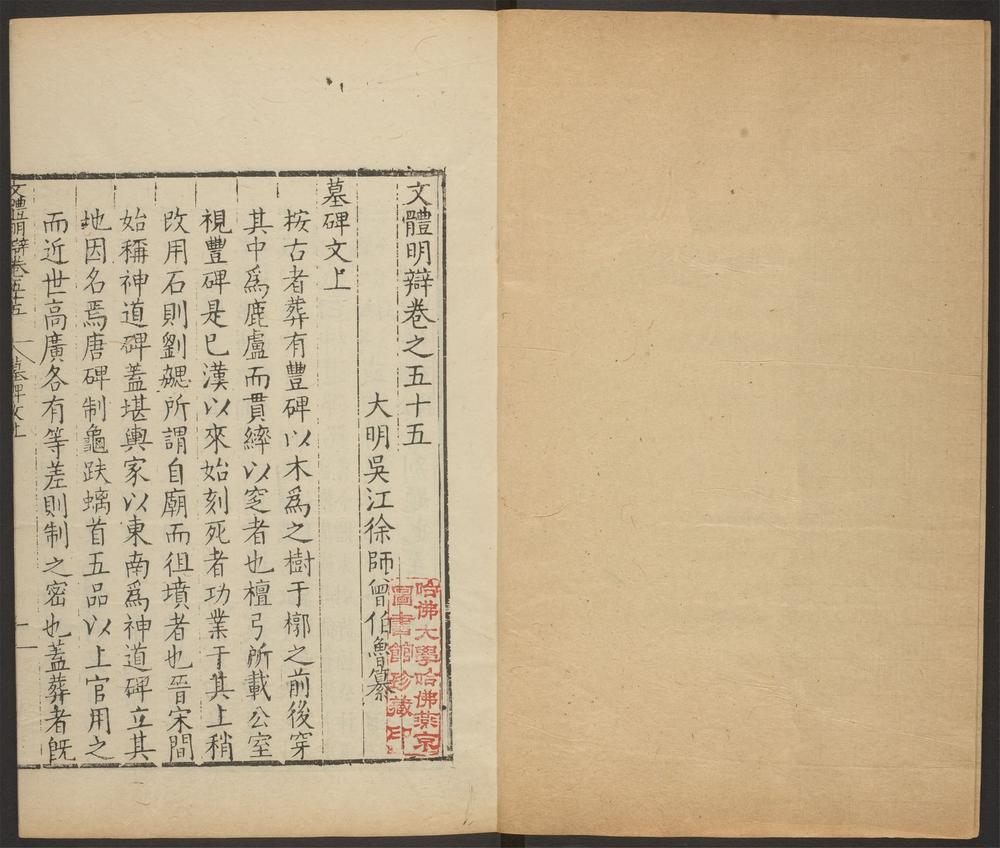 文體明辯卷之五十五
大明吳江徐師曾伯魯纂
墓碑文上
按古者葬有豐碑以木爲之樹于槨之前後穿
其中爲鹿盧而貫繂以窆者也檀弓所載公室
視豐碑是已漢以來始刻死者功業于其上稍
改用石則劉勰所謂自廟而徂墳者也晉宋間
始稱神道碑蓋堪輿家以東南爲神道碑立其
地因名焉唐碑制龜趺螭首五品以上官用之
而近世高廣各有等差則制之密也蓋葬者旣
文體明辯卷五十五
墓碑文上
一
哈佛大學哈佛燕京
圖書館珍藏印